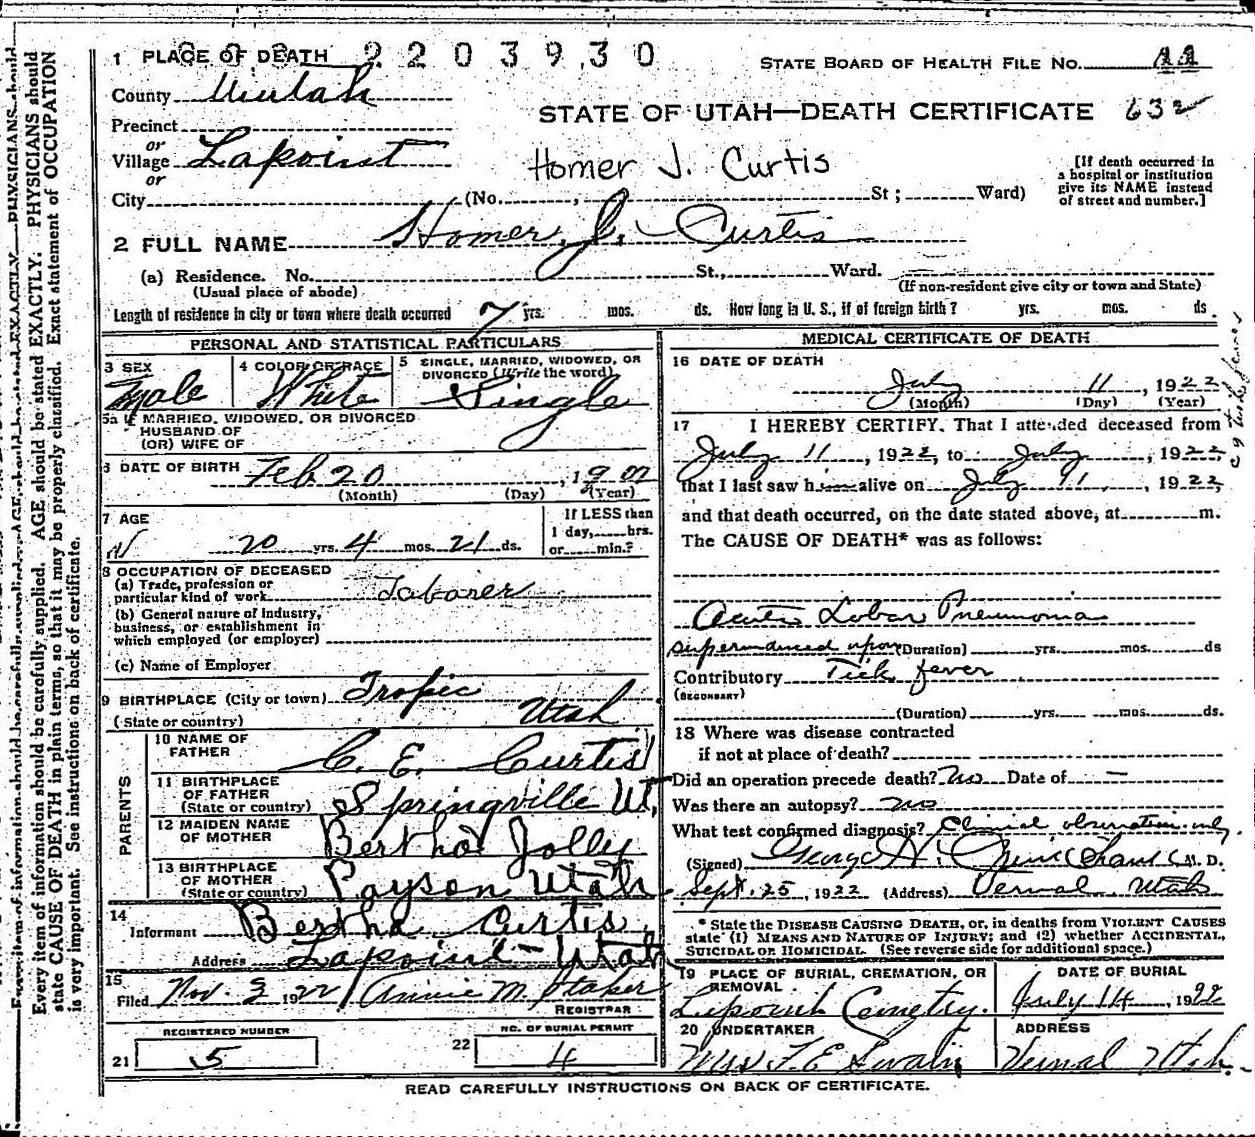 1 PLACE OF DEATH 2203930
STATE BOARD OF HEALTH FILE NO. 11
County Uintah
STATE OF UTAH—DEATH CERTIFICATE 632
Precinct
or
Village Lapoint
Homer J. Curtis
[If death occurred in
a hospital or institution
give its NAME instead
of street and number.]
or
City (No. , St ; Ward)
2 FULL NAME Homer J. Curtis
(a) Residence. No. St., Ward.
(Usual place of abode) (If non-resident give city or town and State)
Length of residence in city or town where death occurred 7 yrs. mos. ds. How long in U. S., if of foreign birth ? yrs. mos. ds.
PERSONAL AND STATISTICAL PARTICULARS
3 SEX
Male
4 COLOR OR RACE
White
5 SINGLE, MARRIED, WIDOWED, OR
DIVORCED (Write the word)
Single
5a If MARRIED, WIDOWED, OR DIVORCED
HUSBAND OF
(OR) WIFE OF
6 DATE OF BIRTH Feb 20 , 1902
(Month) (Day) (Year)
7 AGE
20 yrs. 4 mos. 21 ds.
If LESS than
1 day, hrs.
or min.?
8 OCCUPATION OF DECEASED
(a) Trade, profession or
particular kind of work Laborer
(b) General nature of industry,
business, or establishment in
which employed (or employer)
(c) Name of Employer
9 BIRTHPLACE (City or town) Tropic
(State or country) Utah
PARENTS
10 NAME OF
FATHER C. E. Curtis
11 BIRTHPLACE
OF FATHER
(State or country) Springville Ut.
12 MAIDEN NAME
OF MOTHER Bertha Jolley
13 BIRTHPLACE
OF MOTHER
(State or country) Payson Utah
14
Informant Bertha Curtis
Address Lapoint - Utah
15
Filed Nov. 3 1922 Annie M. Staker
REGISTRAR
REGISTERED NUMBER
21 5
NO. OF BURIAL PERMIT
22 4
MEDICAL CERTIFICATE OF DEATH
16 DATE OF DEATH
July 11 , 1922
(Month) (Day) (Year)
17 I HEREBY CERTIFY. That I attended deceased from
July 11 , 1922, to July , 1922
that I last saw him alive on July 11, , 1922,
and that death occurred, on the date stated above, at m.
The CAUSE OF DEATH* was as follows:
Acute Lobar Pneumonia
upon (Duration) yrs. mos. ds
Contributory Tick fever
(SECONDARY)
(Duration) yrs. mos. ds.
18 Where was disease contracted
if not at place of death?
Did an operation precede death? No Date of —
Was there an autopsy? no
What test confirmed diagnosis? Clinical observation only.
(Signed) George H. M. D.
Sept. 25 , 1922 (Address) Vernal Utah
* State the DISEASE CAUSING DEATH, or, in deaths from VIOLENT CAUSES
state (1) MEANS AND NATURE OF INJURY; and (2) whether ACCIDENTAL,
SUICIDAL OR HOMICIDAL. (See reverse side for additional space.)
19 PLACE OF BURIAL, CREMATION, OR
REMOVAL
Lapoint Cemetry.
DATE OF BURIAL
July 14 , 1922
20 UNDERTAKER
Mrs F. E Swain
ADDRESS
Vernal Utah.
READ CAREFULLY INSTRUCTIONS ON BACK OF CERTIFICATE.
Every item of information should be carefully supplied. AGE should be stated EXACTLY. PHYSICIANS should
state CAUSE OF DEATH in plain terms, so that it may be properly classified. Exact statement of OCCUPATION
is very important. See instructions on back of certificate.